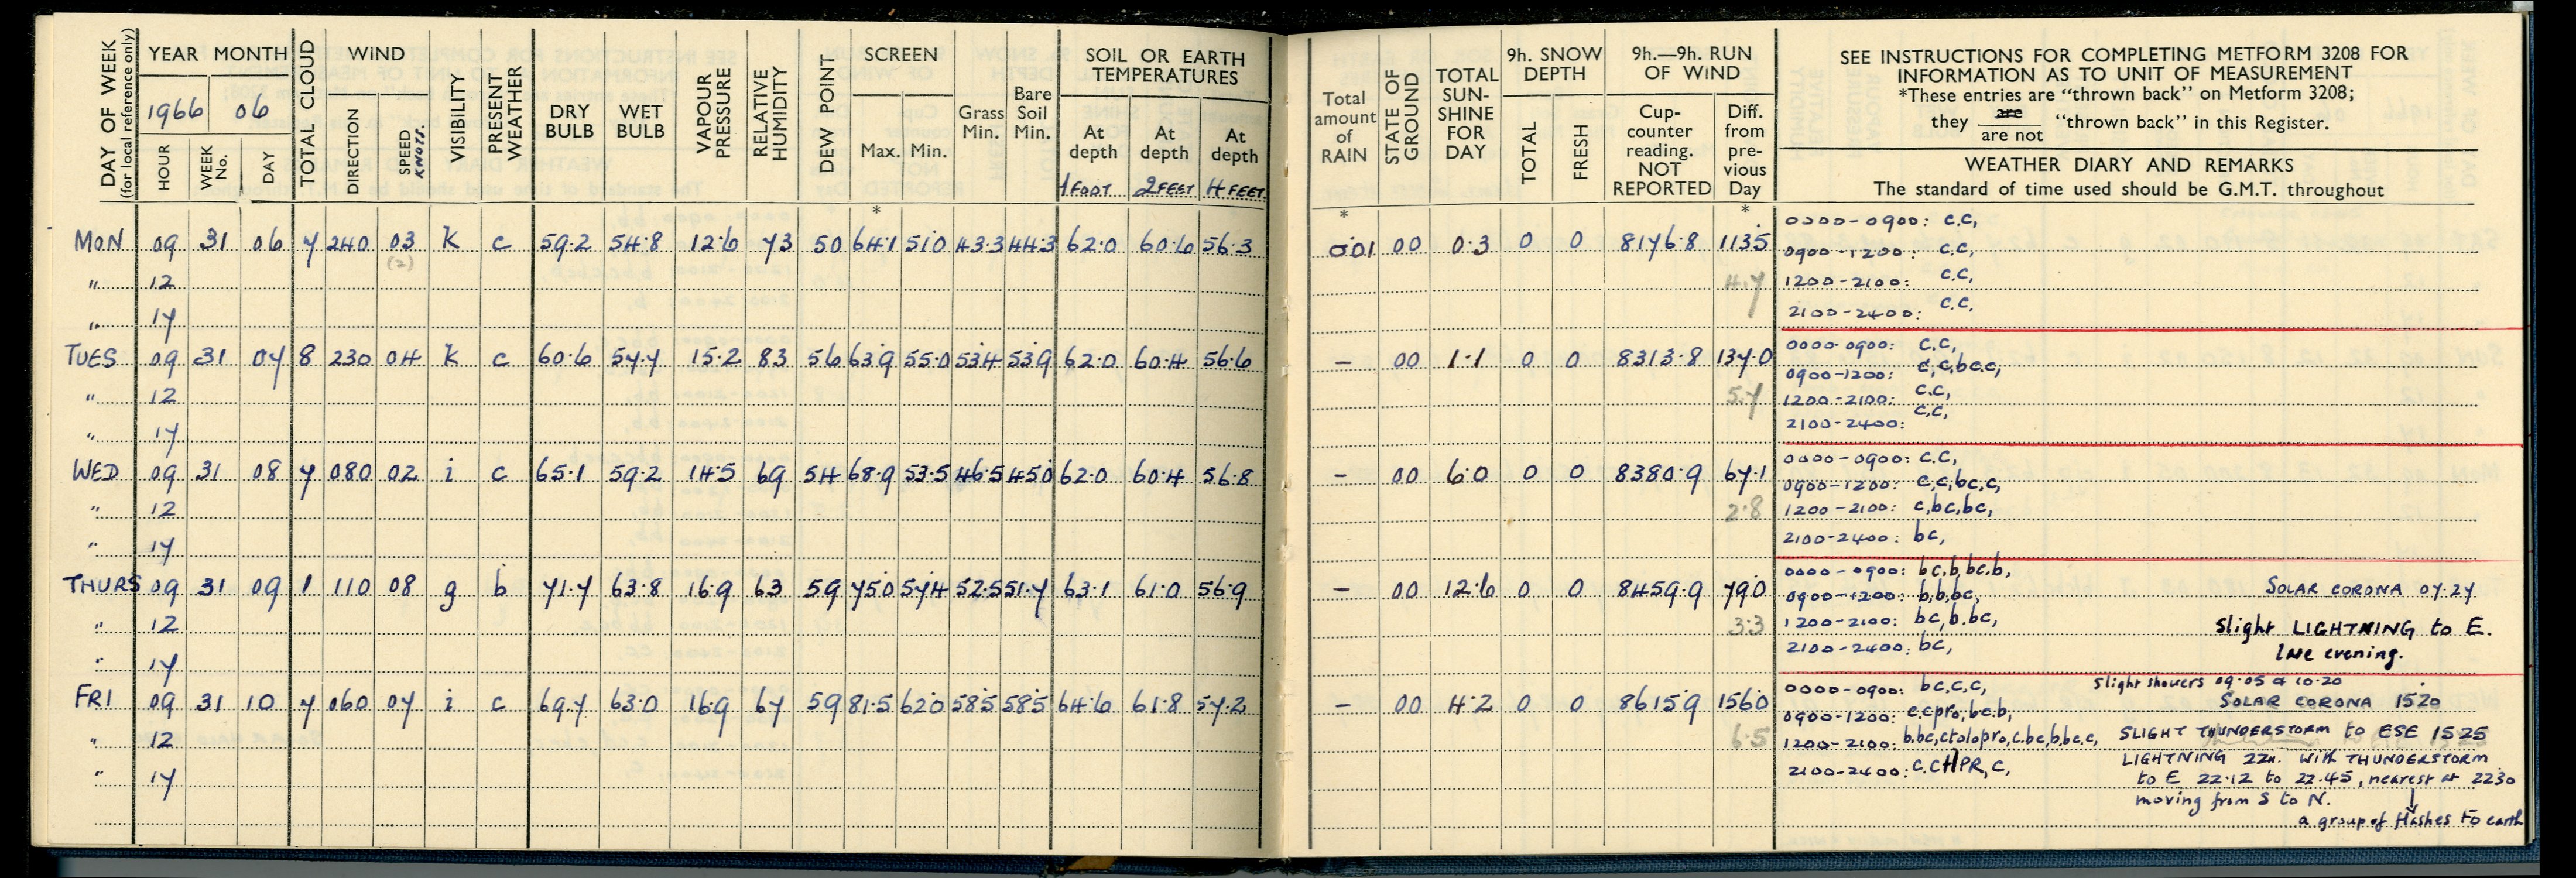 DAY OF WEEK (for local reference only) YEAR MONTH TOTAL CLOUD WIND VISIBILITY PRESENT WEATHER DRY BULB WET BULB VAPOUR PRESSURE RELATIVE HUMIDITY DEW POINT SCREEN Grass Min. Bare Soil Min. SOIL OR EARTH TEMPERATURES
1966 06
HOUR WEEK No. DAY DIRECTION SPEED KNOTS. Max. Min. At depth At depth At depth
1 FOOT 2 FEET 4 FEET
*
MON 09 31 06 7 240 03 K c 59.2 54.8 12.6 73 50 64.1 51.0 43.3 44.3 62.0 60.6 56.3
(2)
" 12
" 17
TUES 09 31 07 8 230 04 K c 60.6 57.7 15.2 83 56 63.9 55.0 53.4 53.9 62.0 60.4 56.6
" 12
" 17
WED 09 31 08 7 080 02 i c 65.1 59.2 14.5 69 54 68.9 53.5 46.5 45.0 62.0 60.4 56.8
" 12
" 17
THURS 09 31 09 1 110 08 g b 71.7 63.8 16.9 63 59 75.0 57.4 52.5 51.7 63.1 61.0 56.9
" 12
" 17
FRI 09 31 10 7 060 07 i c 69.7 63.0 16.9 67 59 81.5 62.0 58.5 58.5 64.6 61.8 57.2
" 12
" 17
Total amount of RAIN STATE OF GROUND TOTAL SUN- SHINE FOR DAY 9h. SNOW DEPTH 9h.—9h. RUN OF WIND
TOTAL FRESH Cup- counter reading. NOT REPORTED Diff. from pre- vious Day
SEE INSTRUCTIONS FOR COMPLETING METFORM 3208 FOR
INFORMATION AS TO UNIT OF MEASUREMENT
*These entries are "thrown back" on Metform 3208;
they are / are not "thrown back" in this Register.
WEATHER DIARY AND REMARKS
The standard of time used should be G.M.T. throughout
* *
0.01 00 0.3 0 0 8176.8 113.5
4.7
0000-0900: c.c,
0900-1200: c.c,
1200-2100: c.c,
2100-2400: c.c,
— 00 1.1 0 0 8313.8 137.0
5.7
0000-0900: c.c,
0900-1200: c,c,bc.c,
1200-2100: c.c,
2100-2400: c.c,
— 00 6.0 0 0 8380.9 67.1
2.8
0000-0900: c.c,
0900-1200: c,c,bc,c,
1200-2100: c,bc,bc,
2100-2400: bc,
— 00 12.6 0 0 8459.9 79.0
3.3
0000-0900: bc,b,bc.b,
0900-1200: b,b,bc,
1200-2100: bc,b.bc,
2100-2400: bc,
SOLAR CORONA 07.27
Slight LIGHTNING to E.
late evening.
— 00 4.2 0 0 8615.9 156.0
6.5
0000-0900: bc,c,c,
0900-1200: c.cpro,bc.b,
1200-2100: b.bc,ctolopro,c.bc,b,bc,c,
2100-2400: c.c PR, c,
Slight showers 09.05 & 10.20
SOLAR CORONA 1520
SLIGHT THUNDERSTORM to ESE 1525
LIGHTNING 22h. With THUNDERSTORM
to E 22.12 to 22.45, nearest at 2230
moving from S to N.
a group of flashes to earth